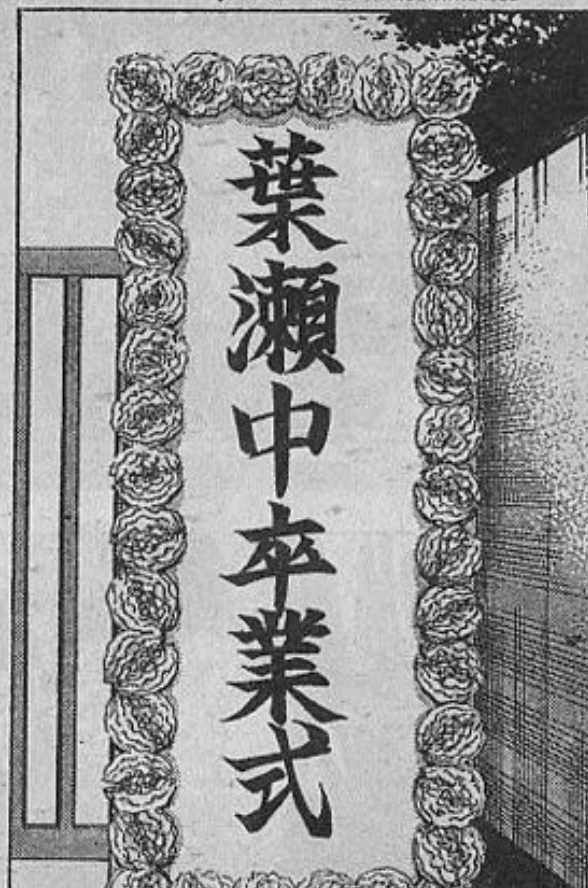 葉瀬中卒業式